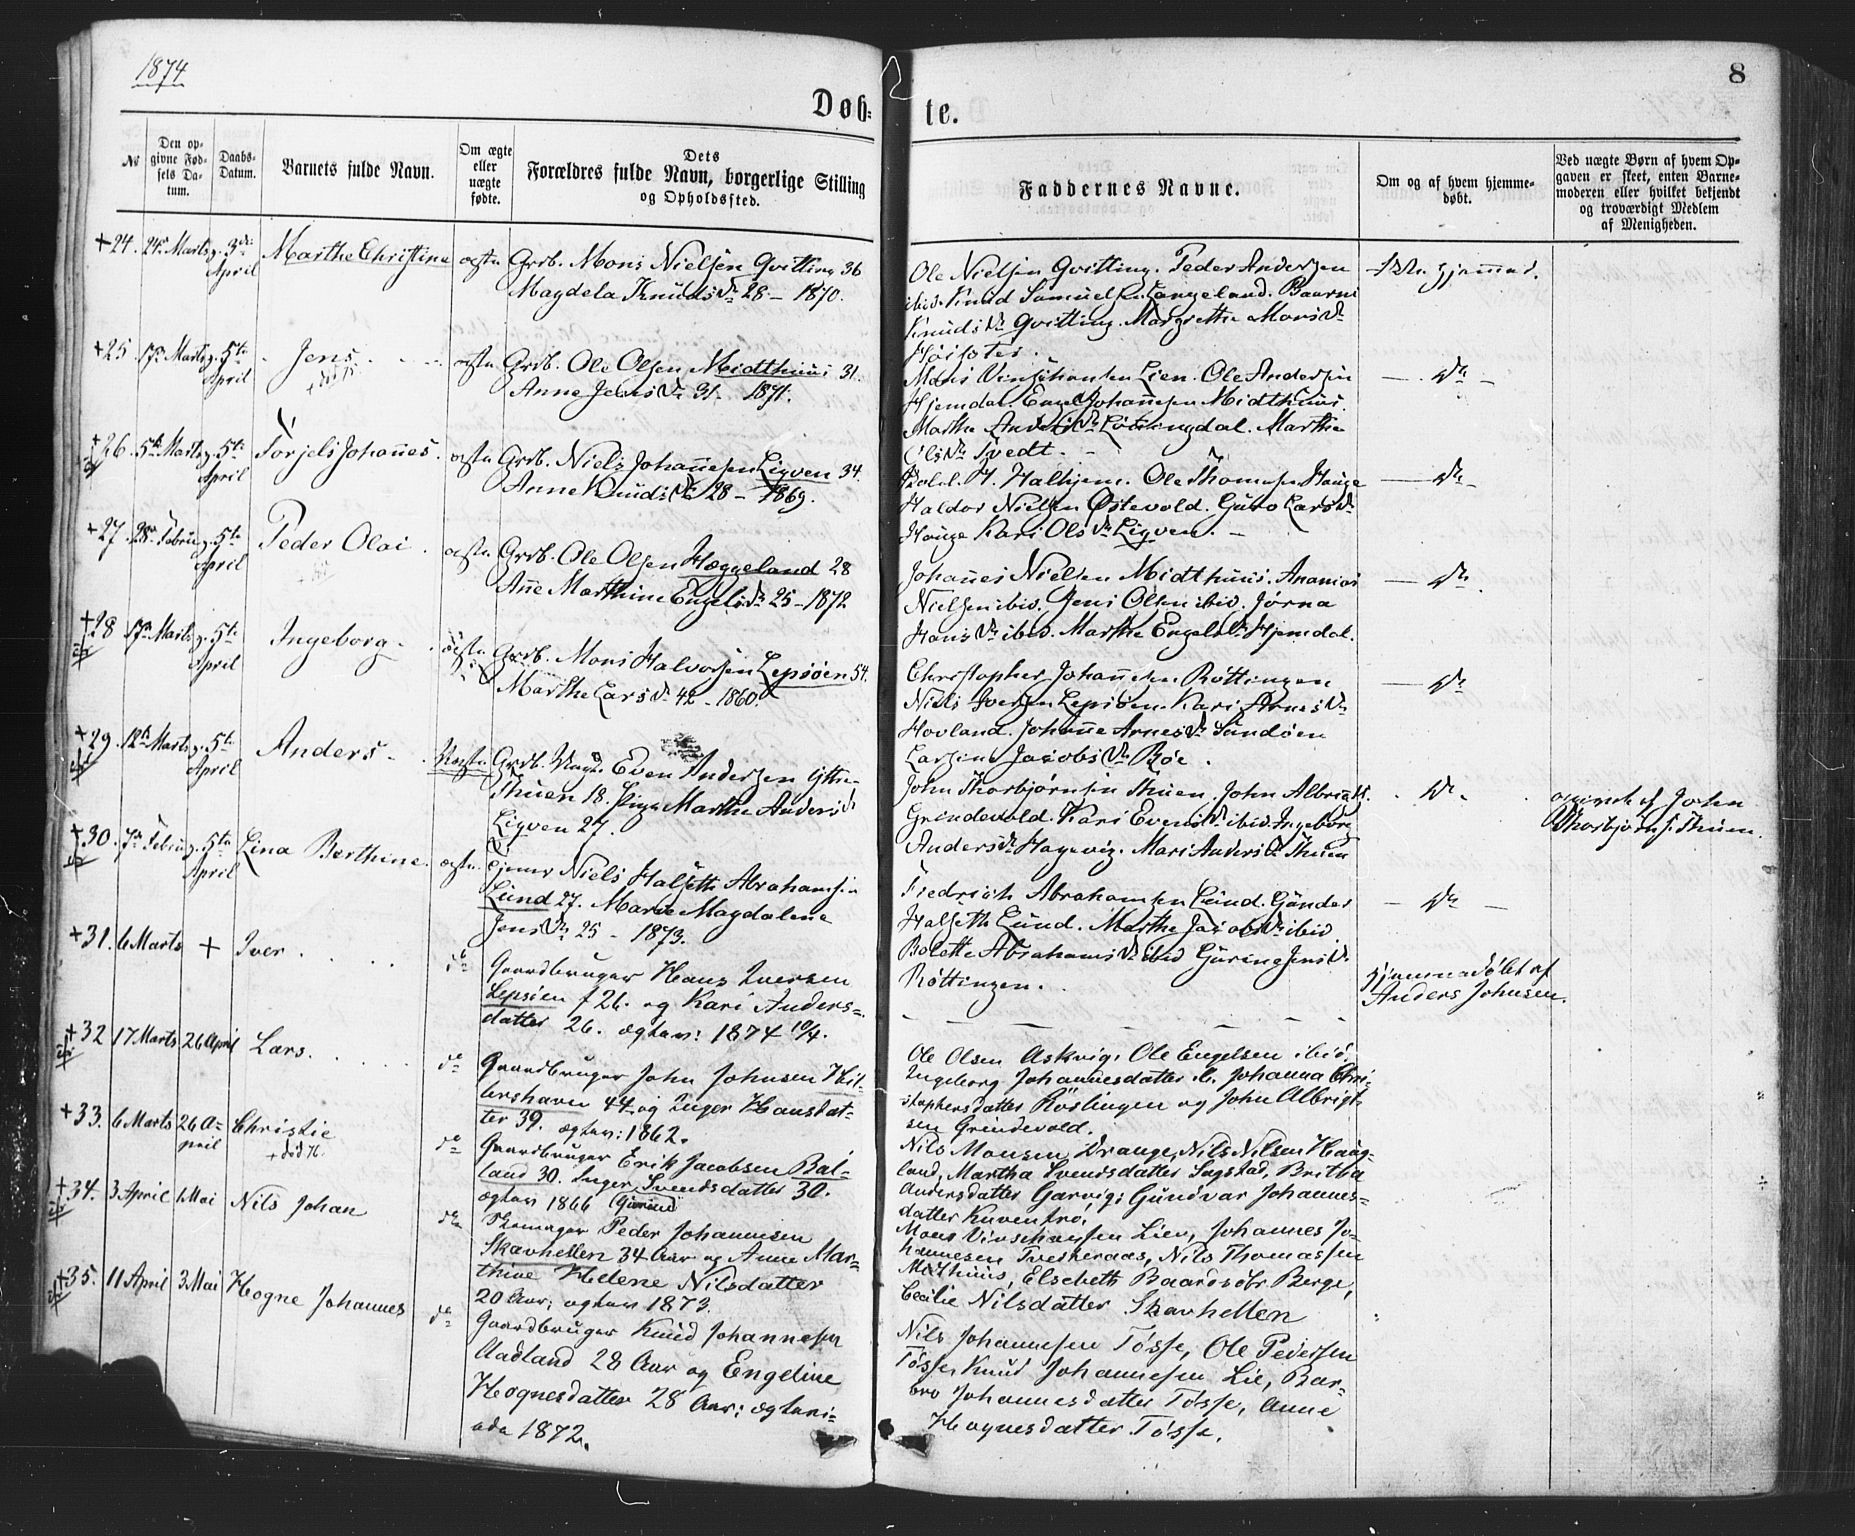 1874
8
Døb-
te.
№
Den op-
givne Fød-
sels Da-
tum.
Daabs-
Datum.
Barnets fulde Navn.
Om ægte
eller
uægte
fødte.
Dets
Forældres fulde Navn, borgerlige Stilling
og Opholdssted.
Faddernes Navne.
Om og af hvem hjemme-
døbt.
Ved uægte Børn af hvem Op-
gaven er skeet, enten Barne-
moderen eller hvilket bekjendt
og troværdigt Medlem
af Menigheden.
+24. 24de Marts 3die
April
Marthe Christine
ægte
Grb. Mons Nielsen Gvitting 36
Magdela Knudsdr 28 - 1870.
Ole Nielsen Gvitting. Peder Andersen
ibid. Knud Samuels. Langeland.
Knudsdr Gvitting. Margrethe Monsdr
+25 17de Marts 5te
April
Jens
ægte
Grb. Ole Olsen Midthuus 31.
Anne Jensdr 31 - 1871.
Mons Vinsjhansen Lien. Ole Andersen
Hjemdal Engel Johannesen Midthuus.
Marthe Andersdr Lønningdal. Marthe
Olsdr Tvedt. -
- do -
+26. 5te Marts 5te
April
Torjels Johannes.
ægte
Grb. Niels Johannesen Ligven 34.
Anne Knudsdr 28 - 1869.
H. Halhjem. Ole Thomas. Hauge
Haldor Nielsen Østevold. Guro Larsdr
Hauge Kari Olsdr Ligven. -
- do -
+27. 28de Februar 5te
April
Peder Olai.
ægte
Grb. Ole Olsen Hæggeland 28
Anne Marthine Engelsdr 25 - 1872
Johannes Nielsen Midthuus. Ananias
Nielsen ibid. Jens Olsen ibid. Jørna
Hansdr ibid. Marthe Engelsdr Hjemdal.
- do .
+28 17de Marts 5te
April
Ingeborg -
ægte
Grb. Mons Halvorsen Lepsøen 54.
Marthe Larsdr 42 - 1860.
Christopher Johannesen Røttingen
Niels Iversen Lepsøen. Kari Arnesdr
Hovland. Johanne Arnesdr Sundøen
Jacobsdr Røe.
- do
+29. 12te Marts 5te
April
Anders -
Uægte
Grb. Even Andersen Ytre-
Thuen 18. Pige Marthe Andersdr
Ligven 27.
John Thorbjørnsen Thuen. John Albrigts.
Grindevold. Kari Evensdr ibid. Ingeborg
Andersdr Hageviz. Mari Andersdr Thuen
- do -
John
Thorbjørns. Thuen.
+30. 7de Februar 5te
April
Lina Berthine.
ægte
Niels Halseth Abrahamsen
Lund 27. Marie Magdalene
Jensdr 25 - 1873.
Fredrich Abrahamsen Lund. Gunder
Halseth Lund. Marthe Jacobsdr ibid
Bolette Abrahamsdr ibid Gurine Jensdr
Røttingen.
- do -
+31. 6 Marts +
Iver. . . . .
do
Gaardbruger Hans Iversen
Lepsøen f 26. og Kari Anders-
datter 26. ægtev: 1874 10/4.
hjemmedøbt af
Anders Johnsen.
+32 17 Marts 26 April
Lars. . . . .
do
Gaardbruger John Johnsen Hil-
lershavn 44 og Inger Hansdat-
ter 39. ægtev: 1862.
Ole Olsen Askvig, Ole Engelsen ibid,
Ingeborg Johannesdatter ib. Johanna Chri-
stophersdatter Röttingen og John Albrigt-
sen Grindevold.
+33. 6 Marts 26 A-
pril
Christie
+ død 76.
do
Gaardbruger Erik Jacobsen Bal-
land 30. Inger Svendsdatter 30.
ægtev 1866
Nils Monsen Drange, Nils Nilsen Haug-
land, Martha Svendsdatter Sagstad, Britha
Andersdatter Garvig; Gundvar Johannes-
datter
+34. 3 April 1 Mai
Nils Johan
do
Skomager Peder Johannesen
Skavhellen 34 Aar og Anne Mar-
thine Helene Nilsdatter
20 Aar; ægtev 1873.
Mons Vinshansen Lien, Johannes Jo-
hannesen Tveskeraas, Nils Thomassen
Midthuus, Elsebeth Baardsdtr Berge,
Cecilie Nilsdatter Skavhellen
+35. 11 April 3 Mai
Hogne Johannes
do
Gaardbruger Knud Johannesen
Aadland 28 Aar og Engeline
Hognesdatter 28 Aar; ægtevi-
ede 1872.
Nils Johannesen Tøsse, Ole Pedersen
Tøsse, Knud Johannesen Lie, Bar-
bro Johannesdatter Tøsse, Anne
Hognesdatter Tøsse.